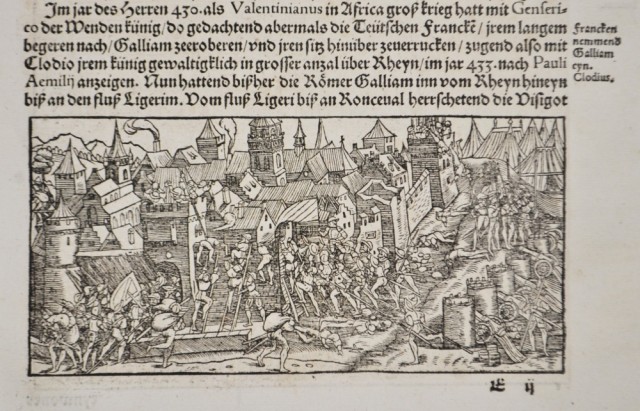 Im jar des Herren 430. als Valentinianus in Africa groß krieg hatt mit Genseri-
co der Wenden künig/do gedachtend abermals die Teütschen Franckē/jrem langem
begeren nach/Galliam zeeroberen/vnd jren sitz hinüber zeuerrucken/zugend also mit
Clodio jrem künig gewaltigklich in grosser anzal über Rheyn/im jar 433. nach Pauli
Aemilij anzeigen. Nun hattend bißher die Römer Galliam inn vom Rheyn hineyn
biß an den fluß Ligerim. Vom fluß Ligeri biß an Ronceual herrschetend die Visigot
Francken
nemmend
Galliam
eyn.
Clodius.
ij